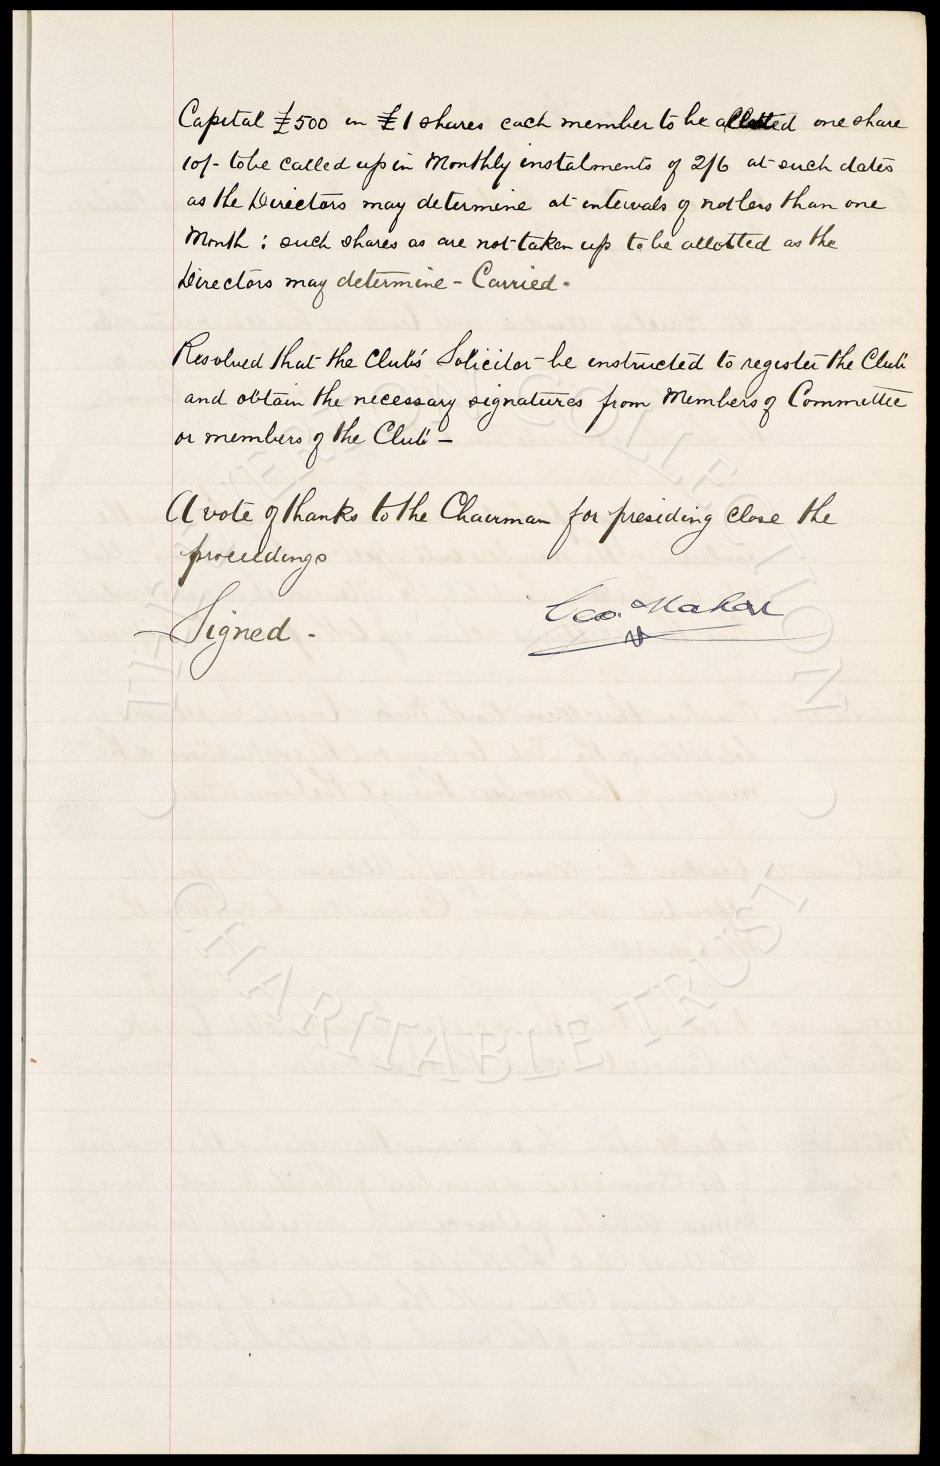 Capital £500 in £1 shares each member to be allotted one share
10/- to be called up in Monthly instalments of 2/6 at such dates
as the Directors may determine at intervals of not less than one
Month : such shares as are not taken up to be allotted as the
Directors may determine - Carried -
Resolved that the Club's Solicitor be instructed to register the Club
and obtain the necessary signatures from Members of Committee
or members of the Club -
A vote of thanks to the Chairman for presiding close the
proceedings
Signed -
Geo.
THE EVERTON COLLECTION
CHARITABLE TRUST